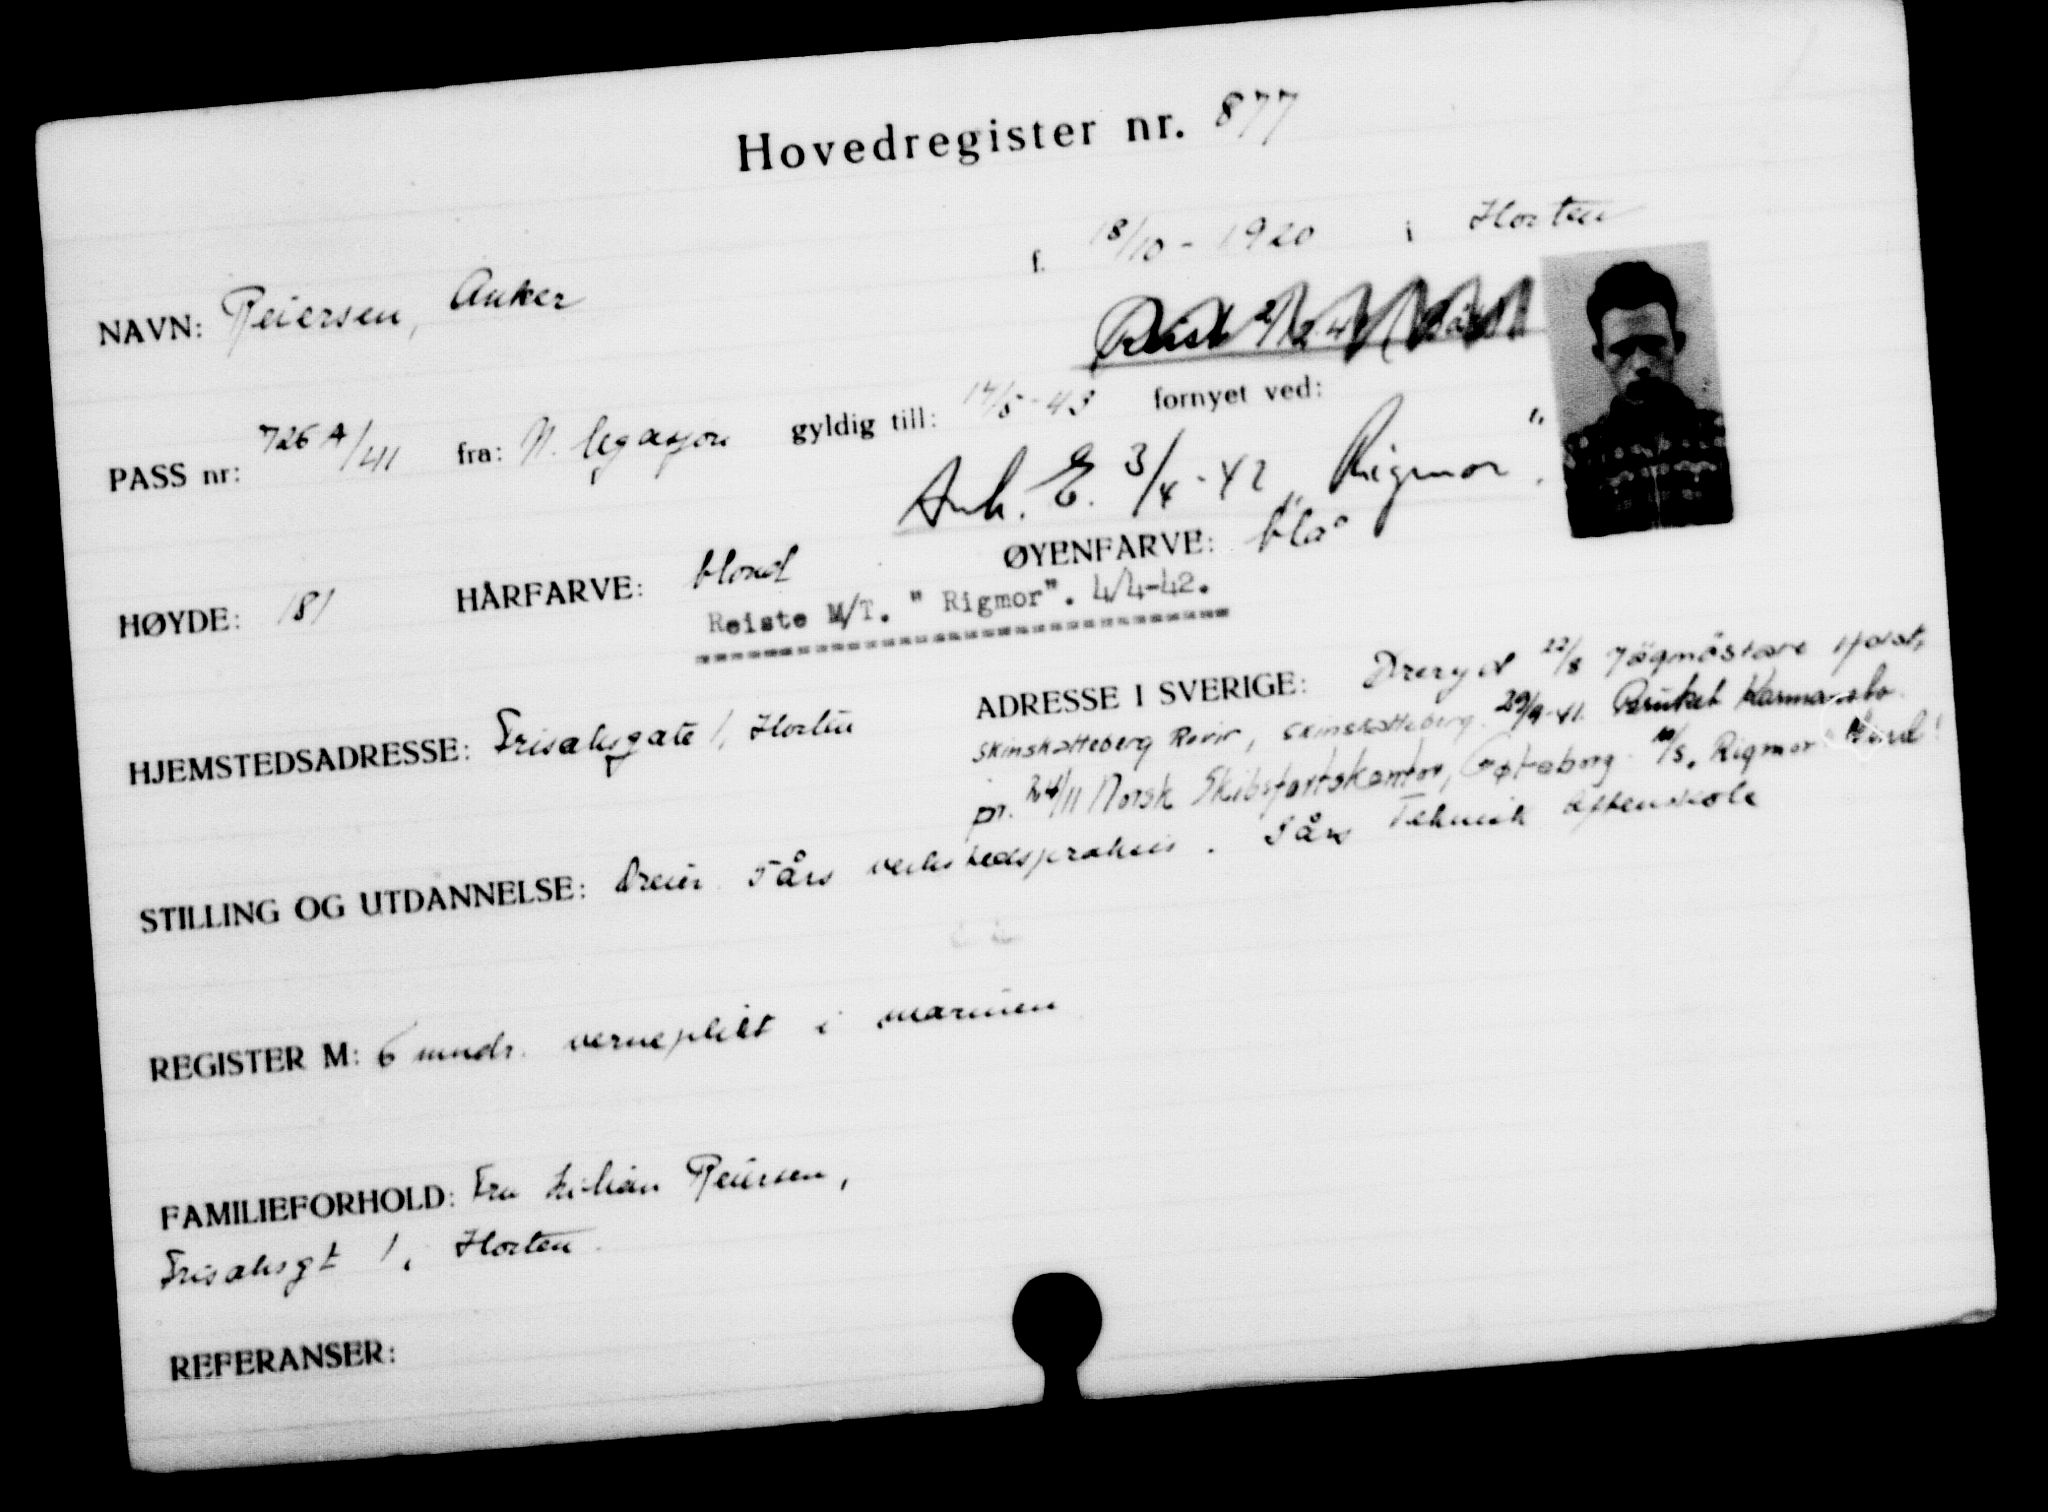 Hovedregister nr. 877
NAVN: Reiersen, Anker f. 18/10 - 1920 i Horten
PASS nr: 726 A/41 fra: N. legasjon gyldig till: 14/5-43 fornyet ved:
Ank. E. 3/4-42 „Rigmor".
HØYDE: 181 HÅRFARVE: blond ØYENFARVE: blå
Reiste M/T. " Rigmor". 4/4-42.
HJEMSTEDSADRESSE: gate 1, Horten ADRESSE I SVERIGE: Øreryd 22/8 Jägmästare
Skinskatteberg Revir, Skinskatteberg. 29/9-41. Bruket Karmansbo.
pr. 24/11 Norsk Skibsfartskontor, Gøteborg. M/S. Rigmor
STILLING OG UTDANNELSE: Dreier. 5 års verkstedspraksis. års Teknisk Aftenskole
REGISTER M: 6 mndr. verneplikt i marinen
FAMILIEFORHOLD: Fru Lilian Reiersen,
1, Horten.
REFERANSER: